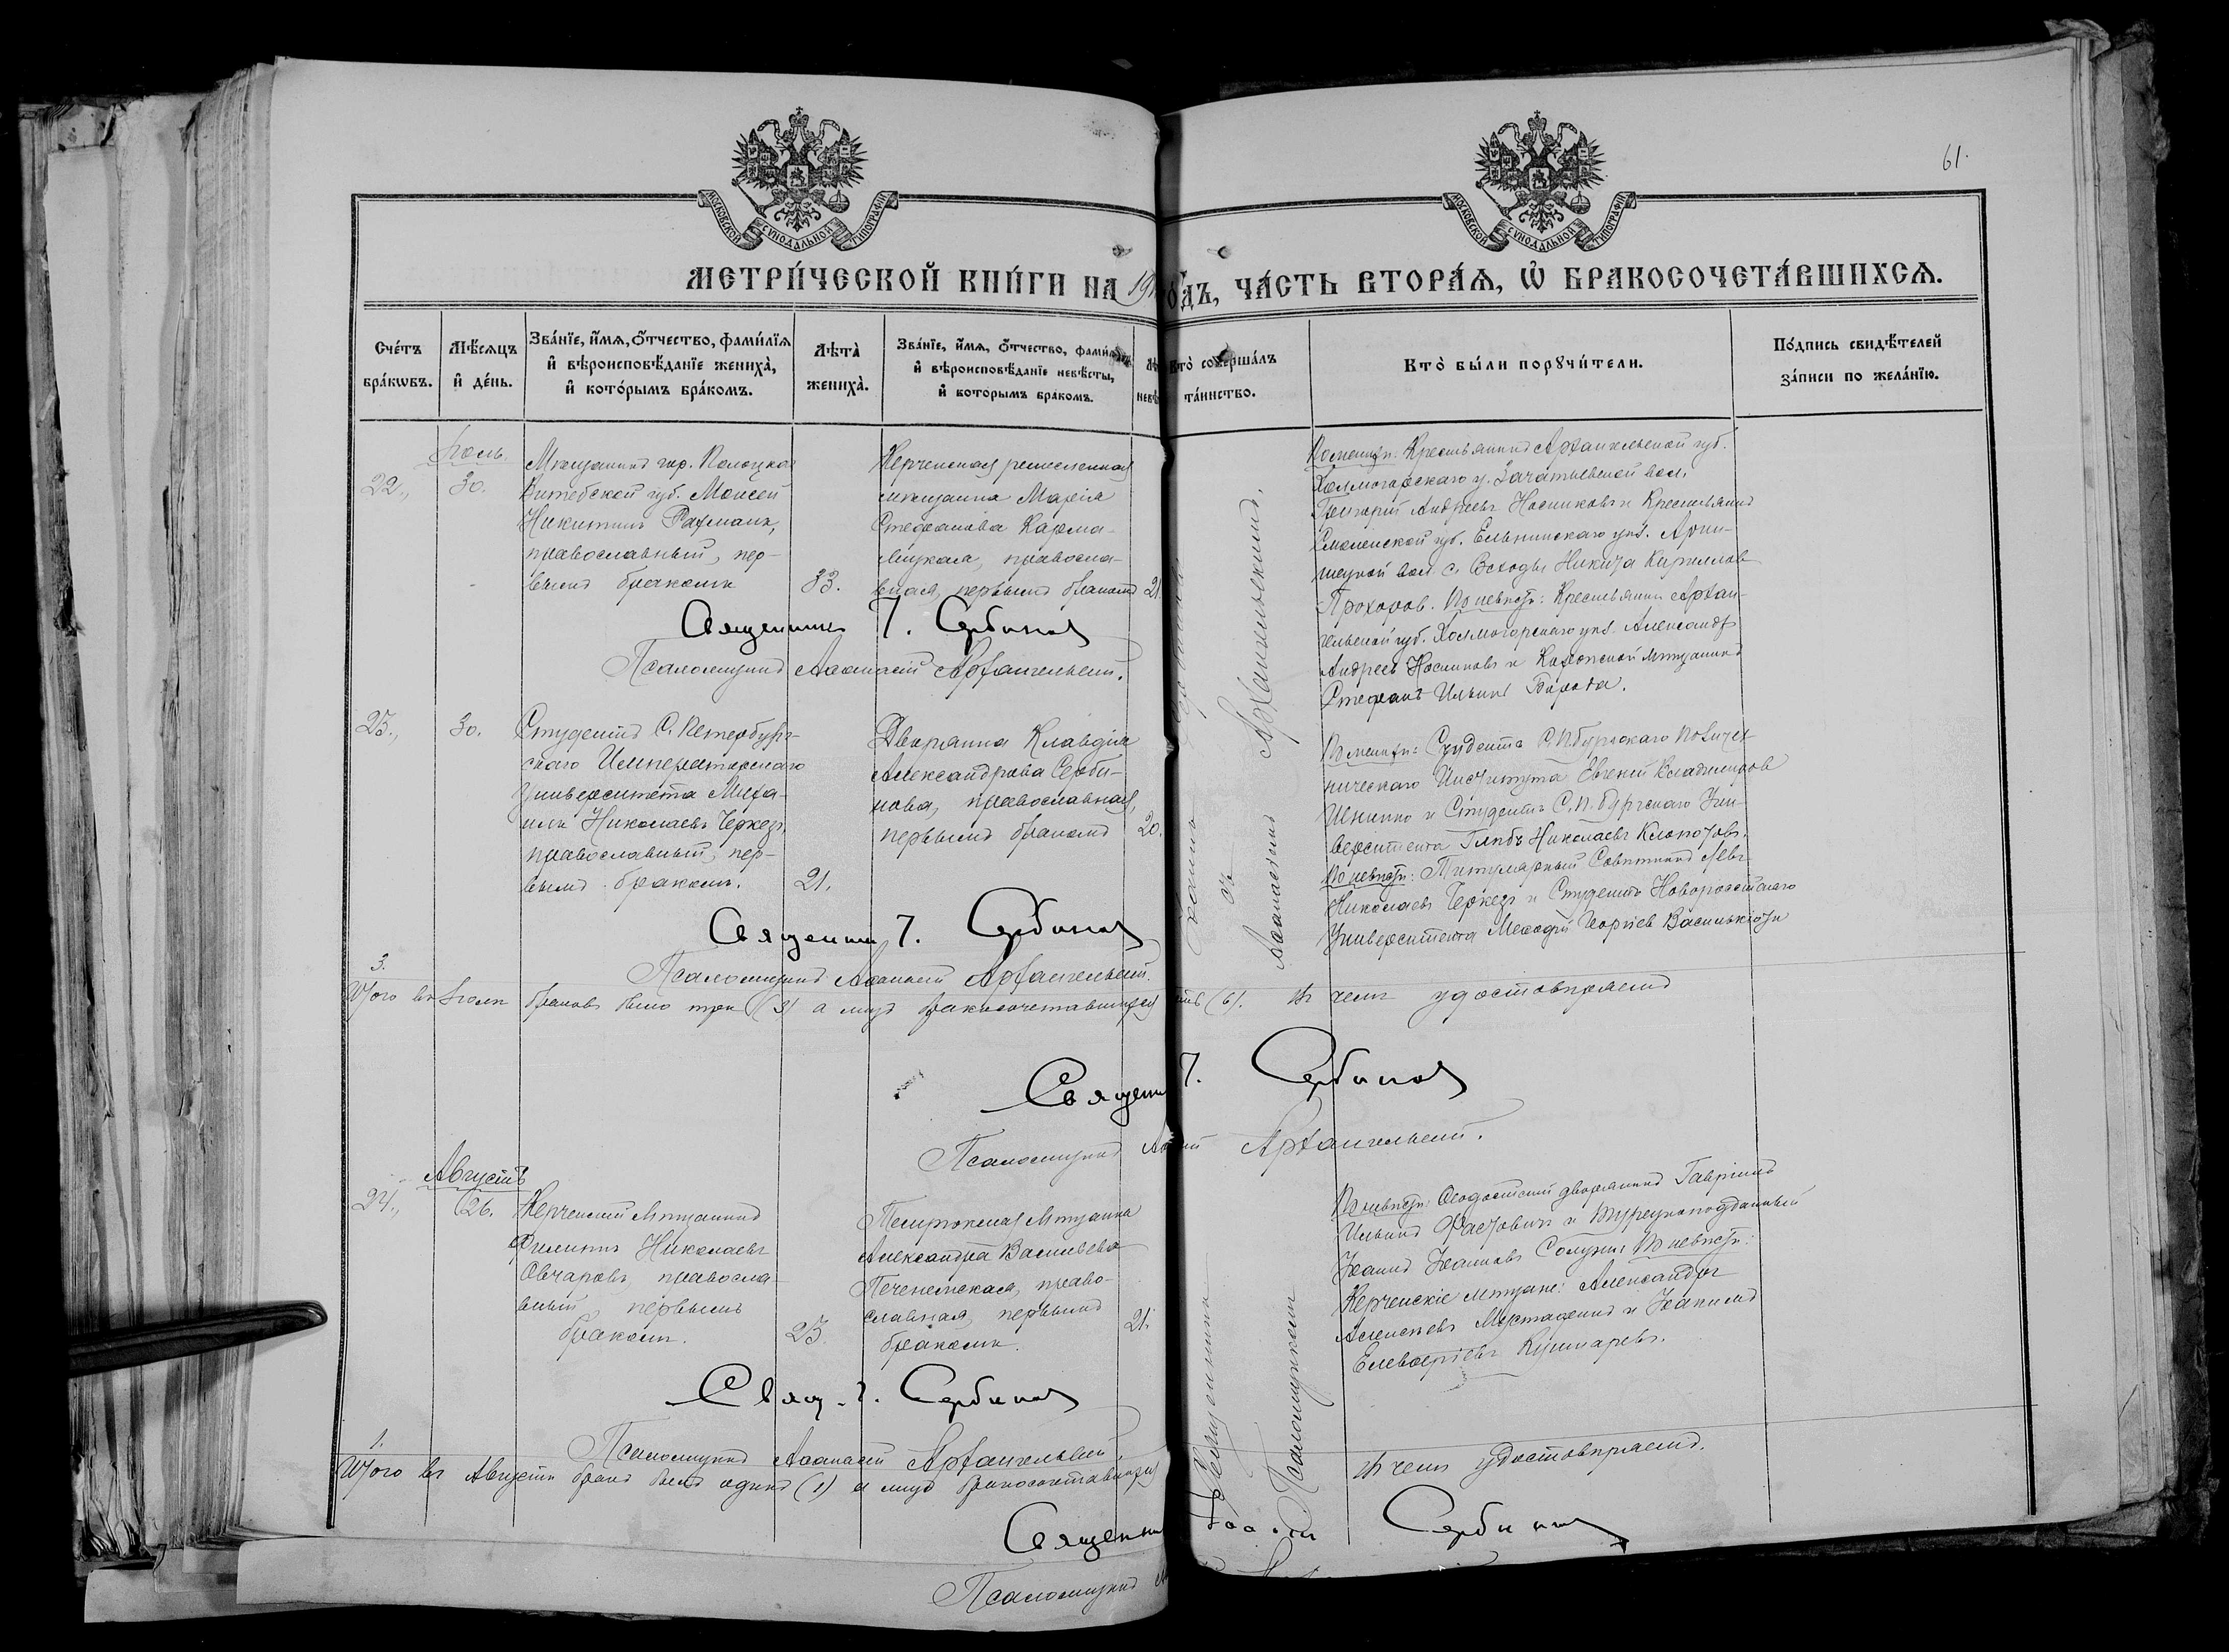 61.
МОСКОВСКОЙ СѴНОДАЛЬНОЙ ТИПОГРАФІИ
МОСКОВСКОЙ СѴНОДАЛЬНОЙ ТИПОГРАФІИ
МЕТРИ́ЧЕСКОЙ КНИ́ГИ НА 19
го́дъ, ЧА́СТЬ ВТОРА́Я, Ѡ҆ БРАКОСОЧЕТА́ВШИХСЯ.
Сче́тъ бра́кѡвъ.
Мѣ́сяцъ и҆ де́нь.
Зва́нїе, и҆́мя, ѻ҆́тчество, фами́лїя и҆ вѣроисповѣ́данїе жениха̀, и҆ кото́рымъ бра́комъ.
Лѣта̀ жениха̀.
Зва́нїе, и҆́мя, ѻ҆́тчество, фами́лїя и҆ вѣроисповѣ́данїе невѣ́сты, и҆ кото́рымъ бра́комъ.
Кто̀ соверша́лъ та́инство.
Кто̀ бы́ли порꙋчи́тели.
По́дпись свидѣ́телей за́писи по жела́нїю.
Іюль.
22.,
30.
Мѣщанинъ гор. Полоцка
Витебской губ. Моисей
Никитинъ Рахманъ,
православный, пер-
вымъ бракомъ
33.
Керченская ремесленная
мѣщанка Марія
Стефанова
православная, первымъ бракомъ
21
По женихѣ: Крестьянинъ Архангельской губ.
Холмогорскаго у. Зачатьевской вол.
Григорій Андреевъ Носниковъ и Крестьянинъ
Смоленской губ. Ельнинскаго уѣз.
вол. с. Всходы Никита Кириллов
Прохоров. По невѣстѣ: Крестьянинъ Архан-
гельской губ. Холмогорскаго уѣз. Александръ
Андреев Носниковъ и мѣщанинъ
Стефанъ Ильинъ Борода.
Священникъ І. Сербиновъ
Псаломщикъ Аѳанасій Архангельскій.
23.,
30.
Студентъ С. Петербург-
скаго Императорскаго
Университета Миха-
илъ Николаевъ Черкезъ,
православный, пер-
вымъ бракомъ.
21.
Дворянка Клавдія
Александрова Серби-
нова, православная,
первымъ бракомъ
20.
По женихѣ: Студентъ С.П.бургскаго Политех-
ническаго Института Евгеній Владимиров
и Студентъ С.П.бургскаго Уни-
верситета Глѣбъ Николаевъ Клопотовъ.
По невѣстѣ: Титулярный Совѣтникъ Левъ
Николаевъ Черкезъ и Студентъ Новороссійскаго
Университета Меѳодій Георгіев Василькіоти
Священникъ І. Сербиновъ
Псаломщикъ Аѳанасій Архангельскій.
3.
Итого въ Іюлѣ браковъ было три (3) а лицъ бракосочетавшихся
(6). въ чемъ удостовѣряемъ
Священ І. Сербиновъ
Псаломщикъ Архангельскій.
Августъ
24.,
26.
Керченскій мѣщанинъ
Филиппъ Николаевъ
Овчаровъ, правосла-
вный, первымъ
бракомъ.
23.
Темрюкская мѣщанка
Александра Васильева
право-
славная, первымъ
бракомъ.
21.
Ѳеодосійскій дворянинъ Гавріилъ
Ильинъ и Турецкоподданный
Іоаннъ Іоанновъ По невѣстѣ:
Керченскіе мѣщане: Александръ
Алексѣевъ и Іоакимъ
Елевѳеріевъ Кушнаревъ.
Свящ. І. Сербиновъ
Псаломщикъ Аѳанасій Архангельскій.
1.
Итого въ Августѣ бракъ былъ одинъ (1) а лицъ бракосочетавшихся
въ чемъ удостовѣряемъ.
Священникъ Сербиновъ
Псаломщикъ
Священникъ Іоаннъ
съ
Псаломщикомъ Аѳанасіемъ Архангельскимъ.